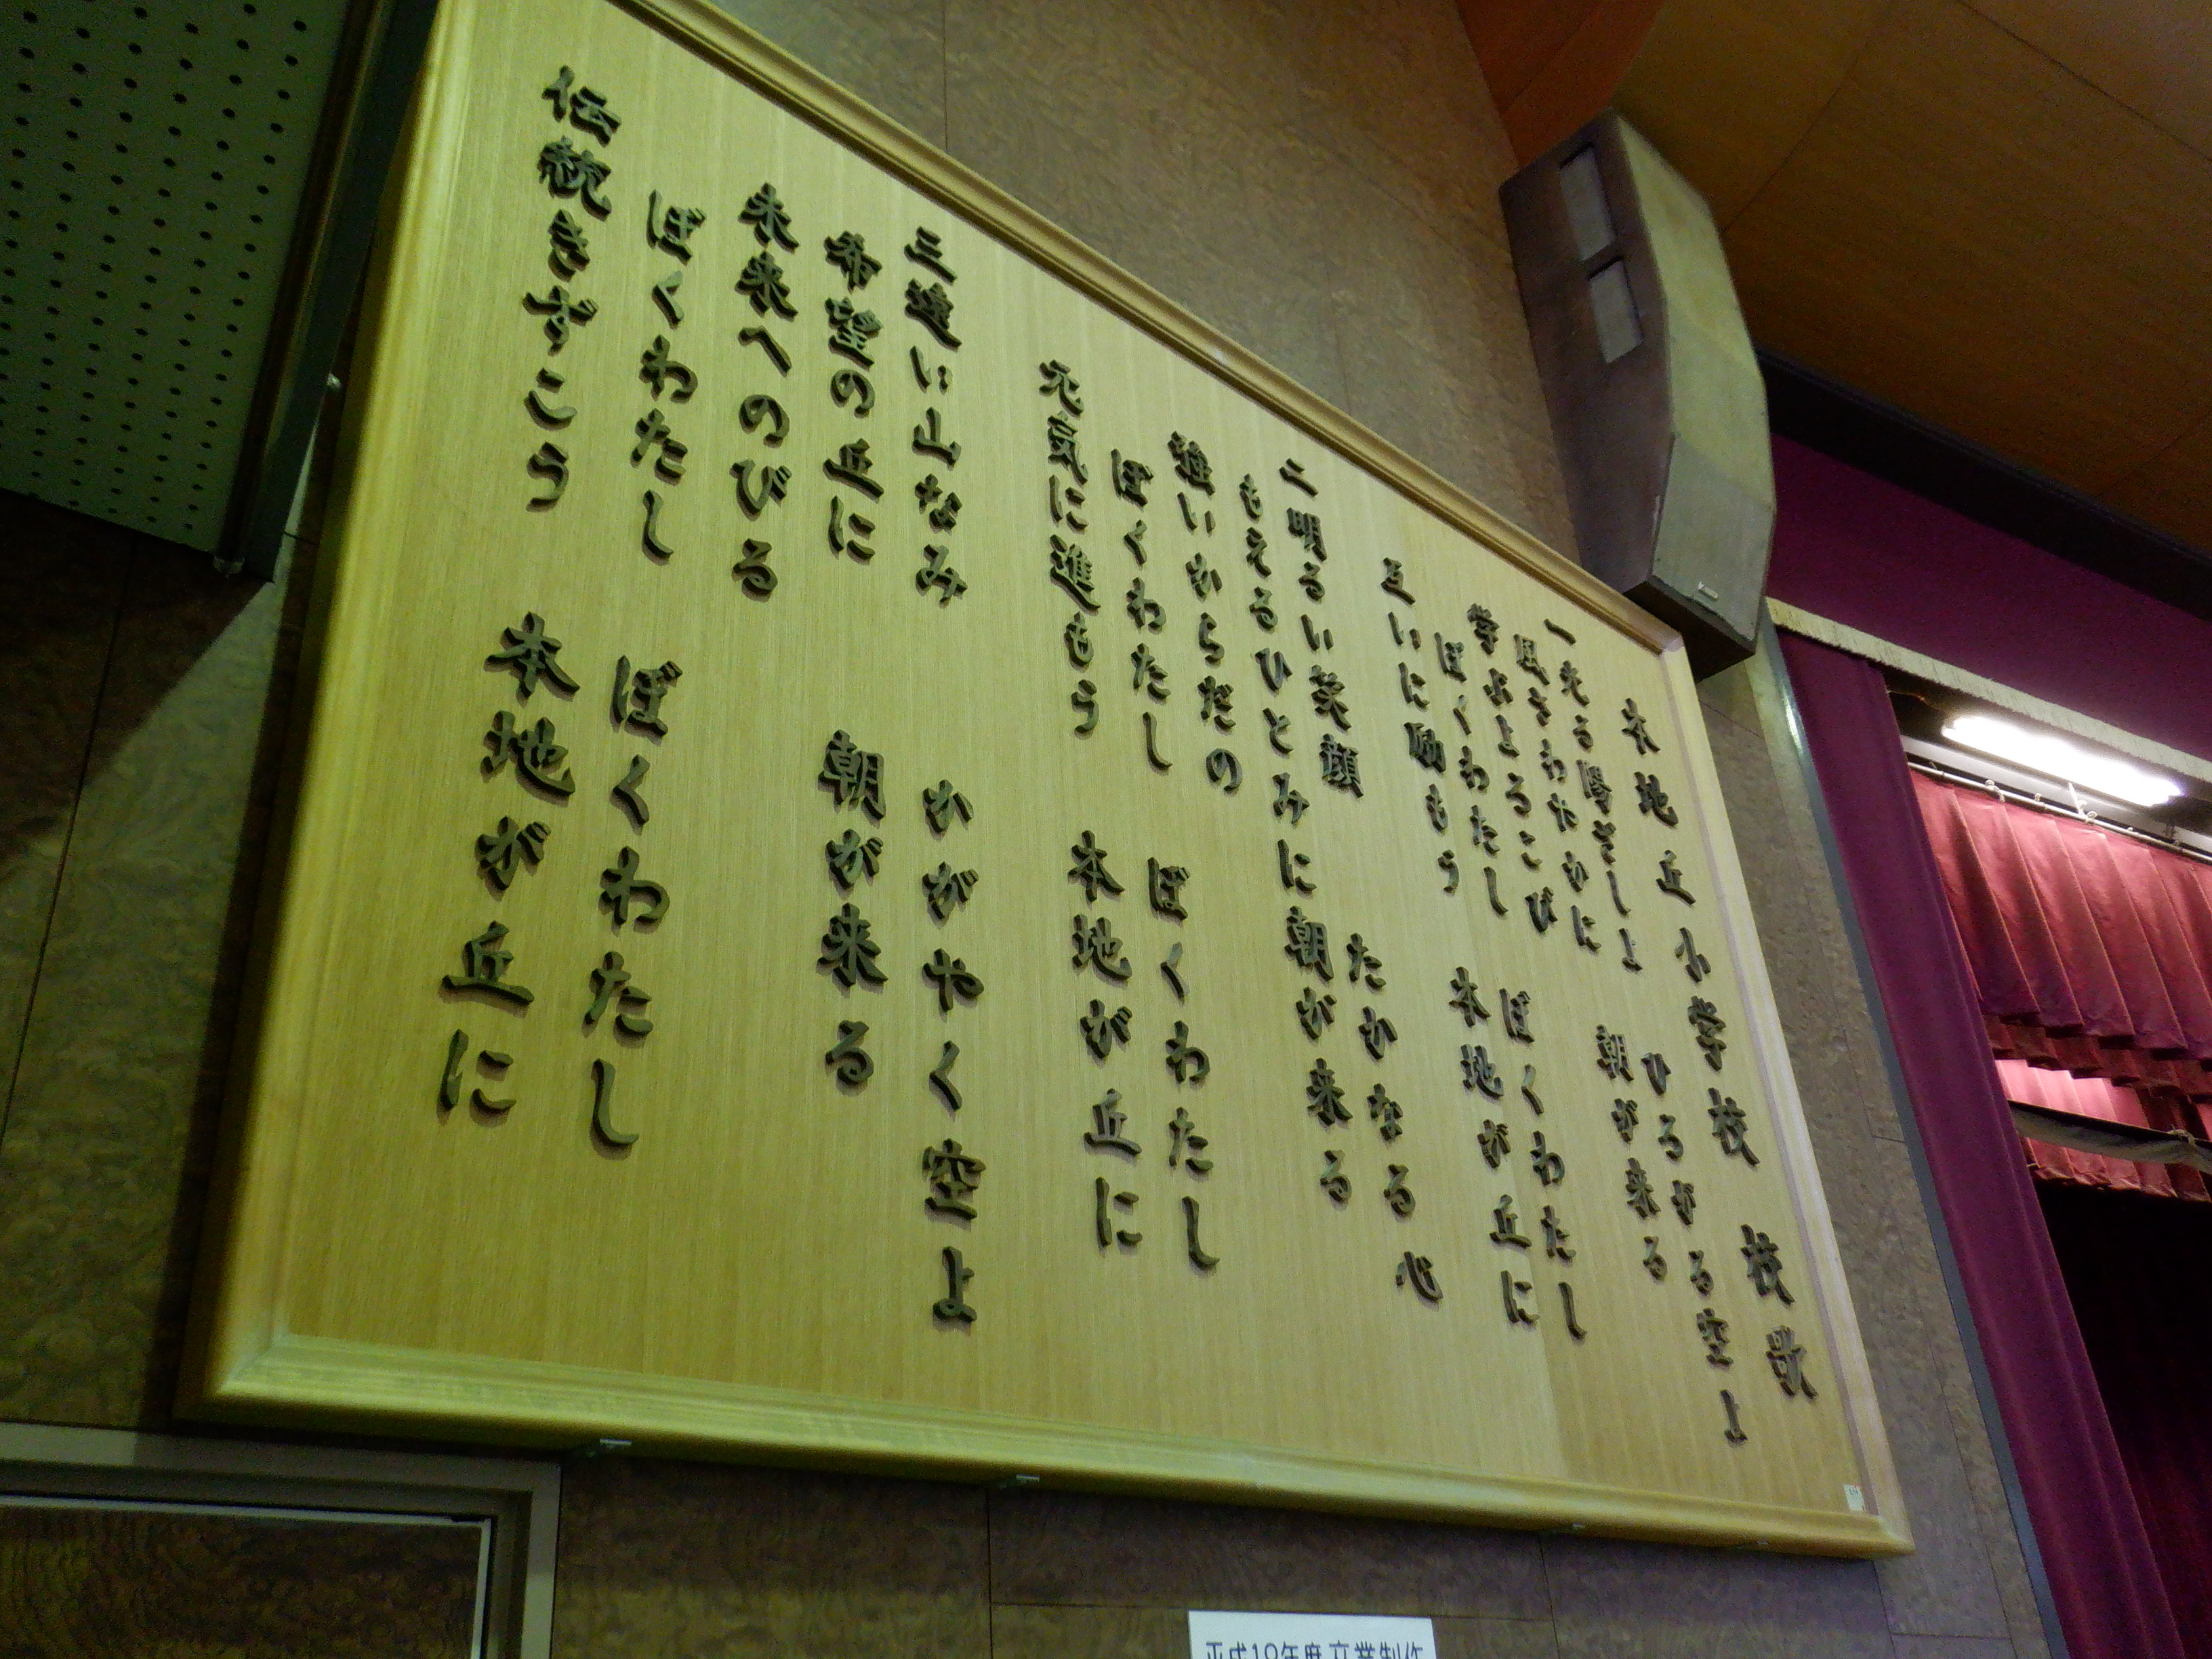 本地丘小学校 校歌
一 光る陽ざしよ ひろがる空よ
風さわやかに 朝が来る
学ぶよろこび
ぼくわたし ぼくわたし
互いに励もう 本地が丘に
二 明るい笑顔 たかなる心
もえるひとみに朝が来る
強いからだの
ぼくわたし ぼくわたし
元気に進もう 本地が丘に
三 遠い山なみ かがやく空よ
希望の丘に 朝が来る
未来へのびる
ぼくわたし ぼくわたし
伝統きずこう 本地が丘に
平成19年度 卒業制作